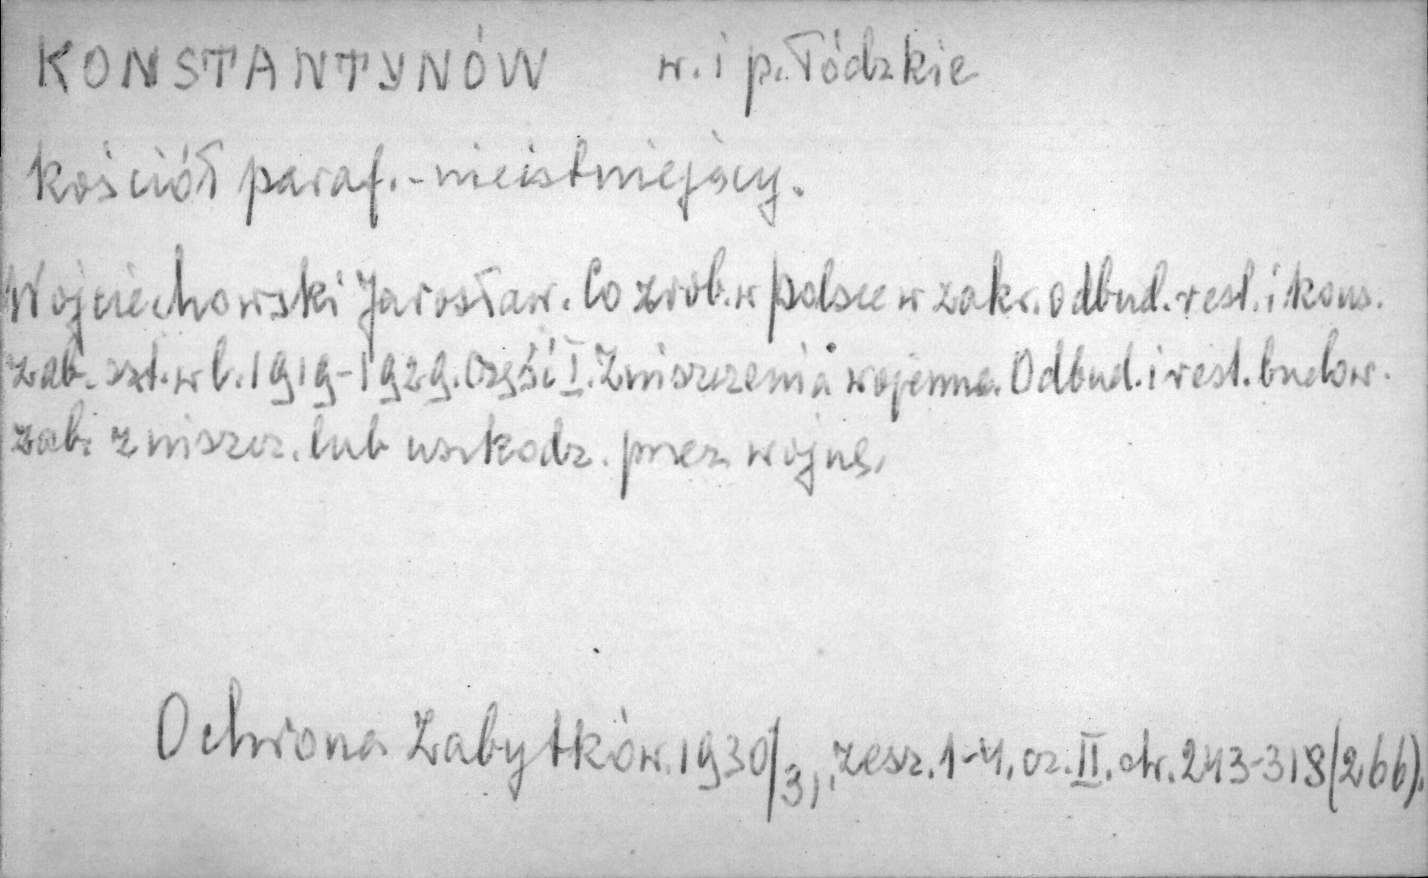 KONSTANTYNÓW w. i p. Łódzkie
kościół paraf. - nieistniejący.
Wojciechowski Jarosław. Co zrob. w Polsce w zakr. odbud. rest. i kons.
zab. szt. w l. 1919-1929. Część I. Zniszczenia wojenne. Odbud. i rest. budow.
zab. zniszcz. lub uszkodz. przez wojnę.
Ochrona Zabytków. 1930/31, zesz. 1-4, cz. II. str. 243-318 (266).